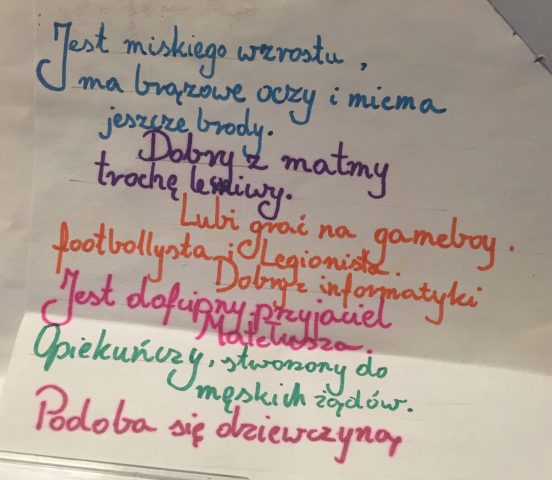 Jest miskiego wzrostu,
ma brązowe oczy i miema
jeszcze brody.
Dobry z matmy
trochę leniwy.
Lubi grać na gameboy.
footbollysta i Legionista.
Dobry z informatyki
Jest dofcipny, przyjaciel
Mateusza.
Opiekuńczy, stwonony do
męskich żądów.
Podoba się dziewczyną,